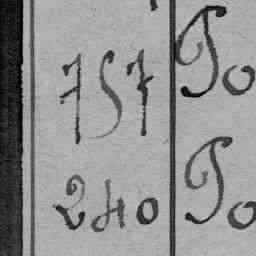 757 Jo
240 Jo